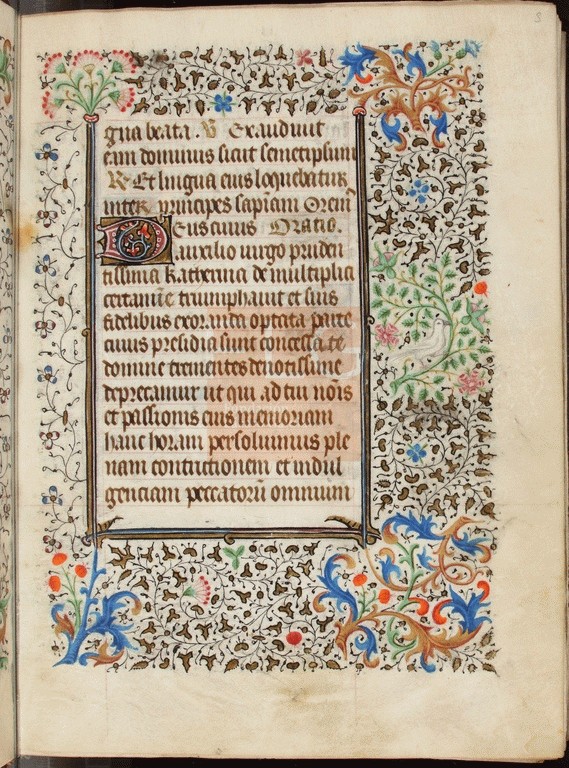 gna beata. V Exaudivit
eam dominus sicut semetipsum
R Et lingua eius loquebatur
inter principes sapiam Orem
Deus cuius Oratio.
auxilio virgo pruden
tissima Katherina de multiplici
certamine triumphavit et suis
fidelibus exoranti optata parte
cuius presidia sunt concessa te
domine trementes devotissime
deprecamur ut qui ad tui nois
et passionis eius memoriam
hanc horam persolvimus ple
nam contritionem et indul
genciam peccatoru omnium